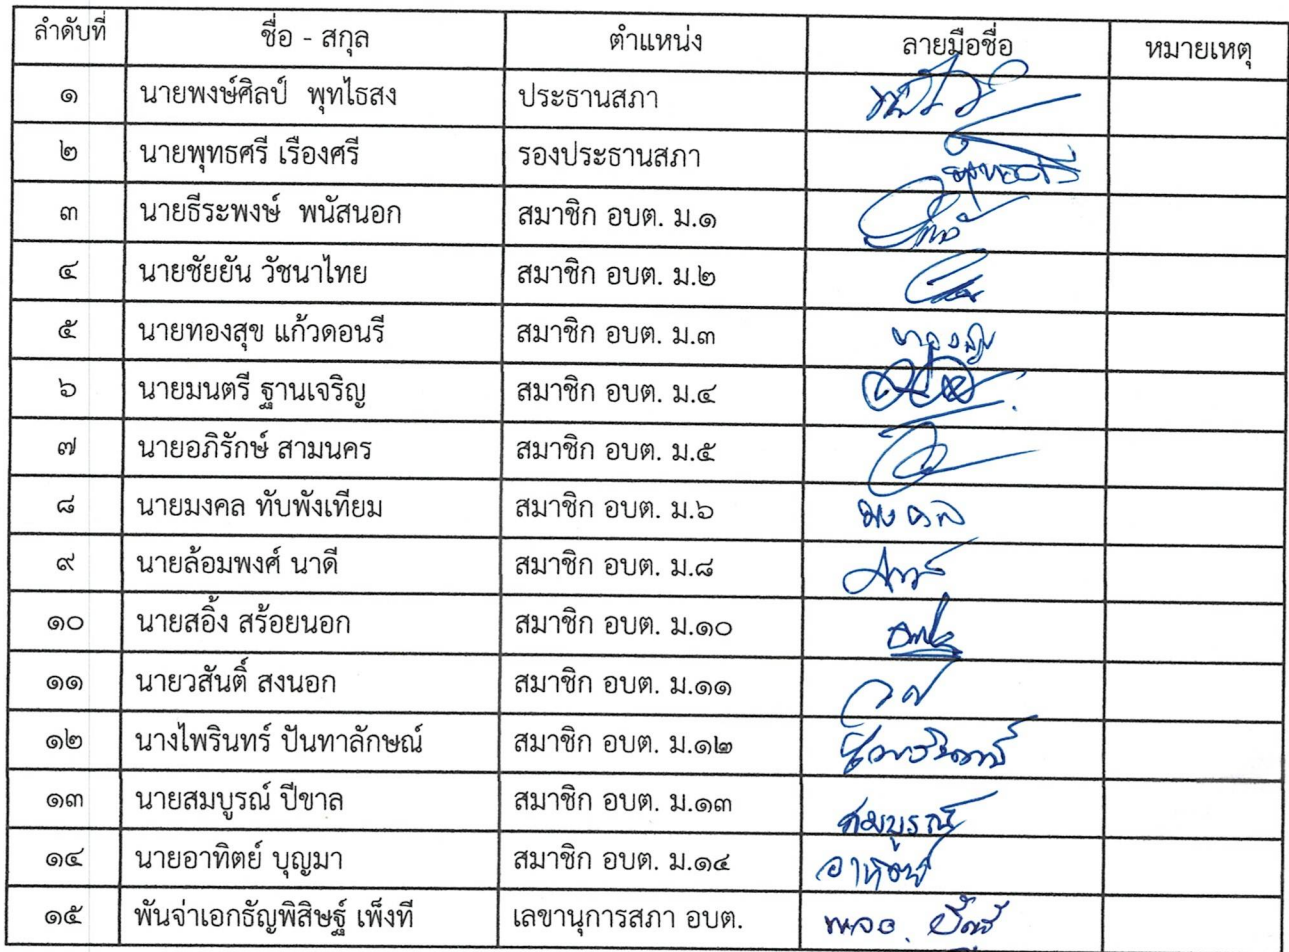 ลำดับที่ ชื่อ - สกุล ตำแหน่ง ลายมือชื่อ หมายเหตุ
๑ นายพงษ์ศิลป์ พุทไธสง ประธานสภา
๒ นายพุทธศรี เรืองศรี รองประธานสภา พุทธศรี
๓ นายธีระพงษ์ พนัสนอก สมาชิก อบต. ม.๑
๔ นายชัยยัน วัชนาไทย สมาชิก อบต. ม.๒
๕ นายทองสุข แก้วดอนรี สมาชิก อบต. ม.๓
๖ นายมนตรี ฐานเจริญ สมาชิก อบต. ม.๔
๗ นายอภิรักษ์ สามนคร สมาชิก อบต. ม.๕
๘ นายมงคล ทับพังเทียม สมาชิก อบต. ม.๖ มงคล
๙ นายล้อมพงศ์ นาดี สมาชิก อบต. ม.๘
๑๐ นายสอิ้ง สร้อยนอก สมาชิก อบต. ม.๑๐
๑๑ นายวสันติ์ สงนอก สมาชิก อบต. ม.๑๑
๑๒ นางไพรินทร์ ปันทาลักษณ์ สมาชิก อบต. ม.๑๒
๑๓ นายสมบูรณ์ ปีขาล สมาชิก อบต. ม.๑๓ สมบูรณ์
๑๔ นายอาทิตย์ บุญมา สมาชิก อบต. ม.๑๔ อาทิตย์
๑๕ พันจ่าเอกธัญพิสิษฐ์ เพ็งที เลขานุการสภา อบต.